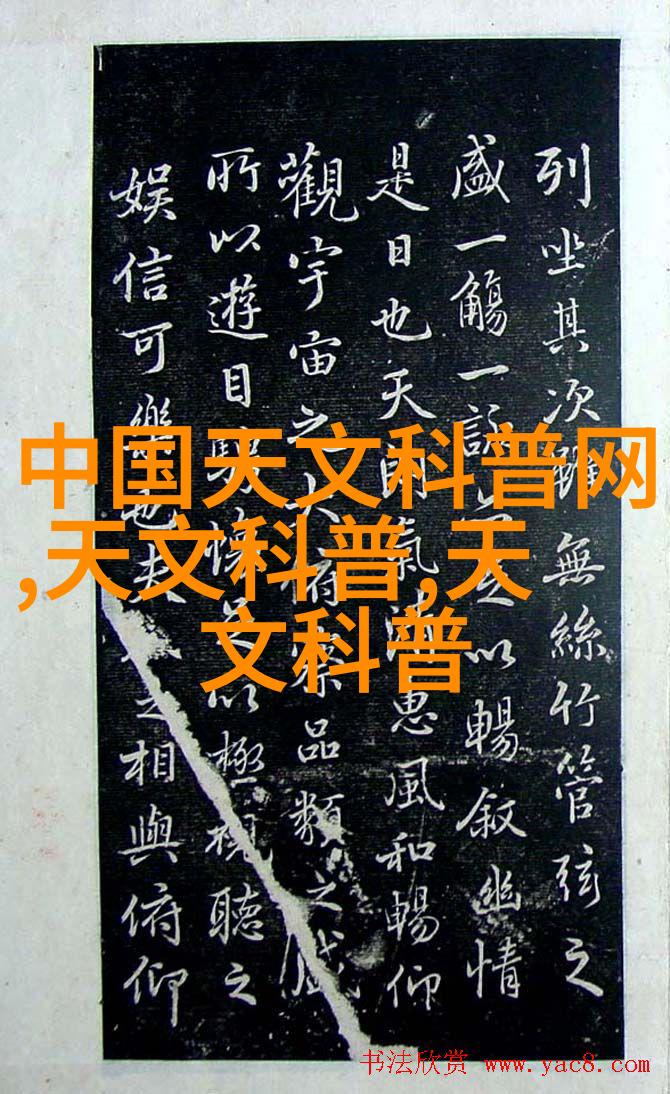 列坐其次雖無絲竹管弦之
盛一觴一詠以暢敘幽情
是日也天朗氣清惠風和暢仰
觀宇宙之大俯察品類之盛
所以遊目騁懷足以極視聽之
娛信可樂也夫之相與俯仰
中国天文科普网
,天文科普,天
文科普
书法欣赏 www.yac8.com